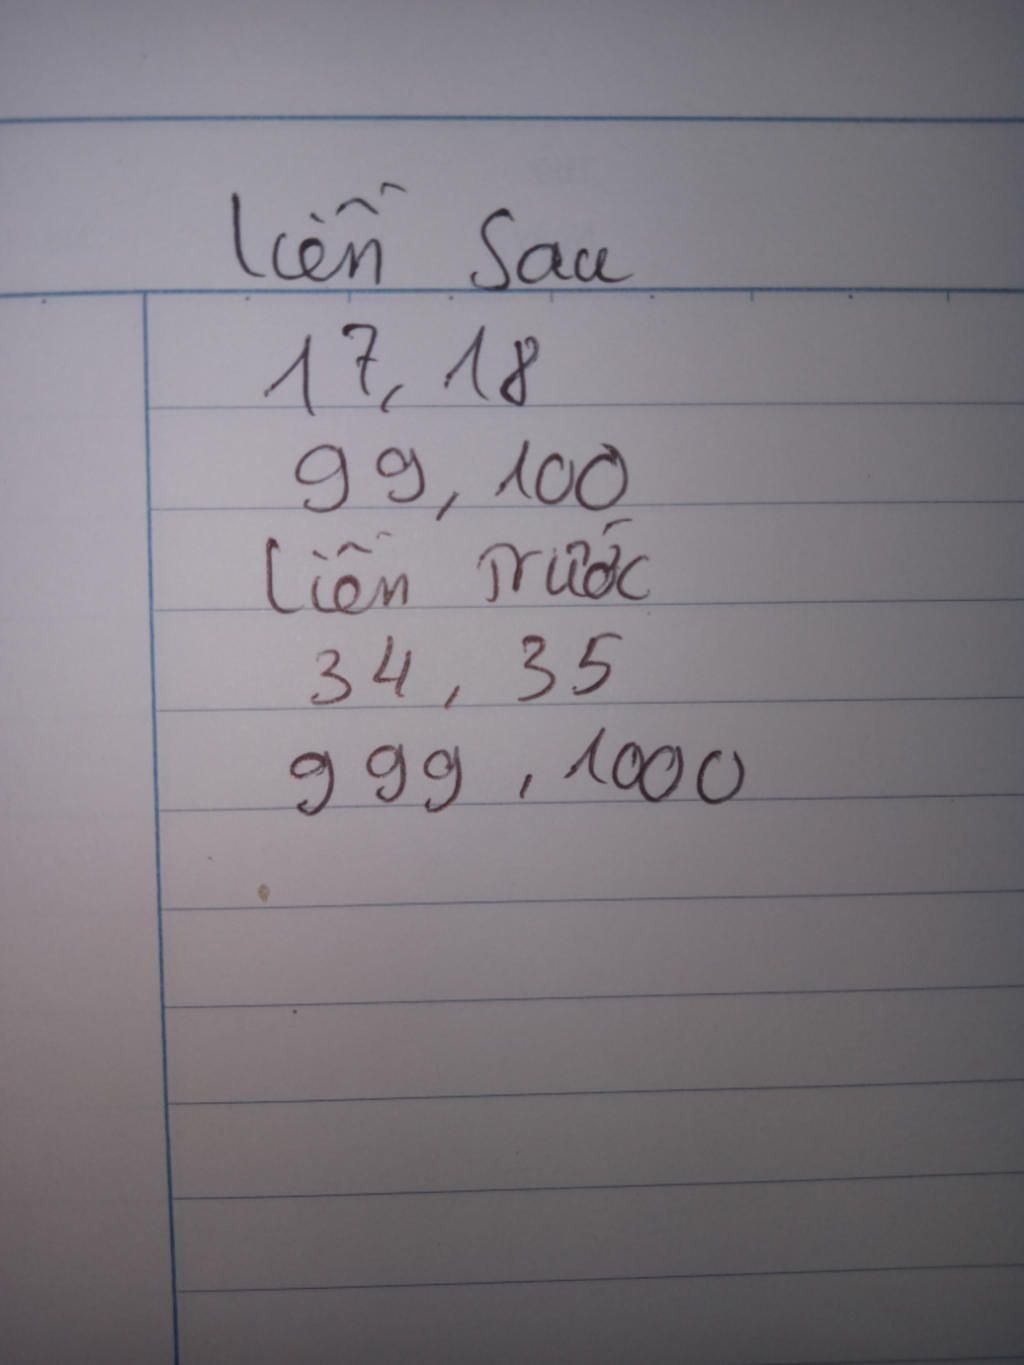 liền sau
17, 18
99, 100
liền trước
34, 35
999, 1000